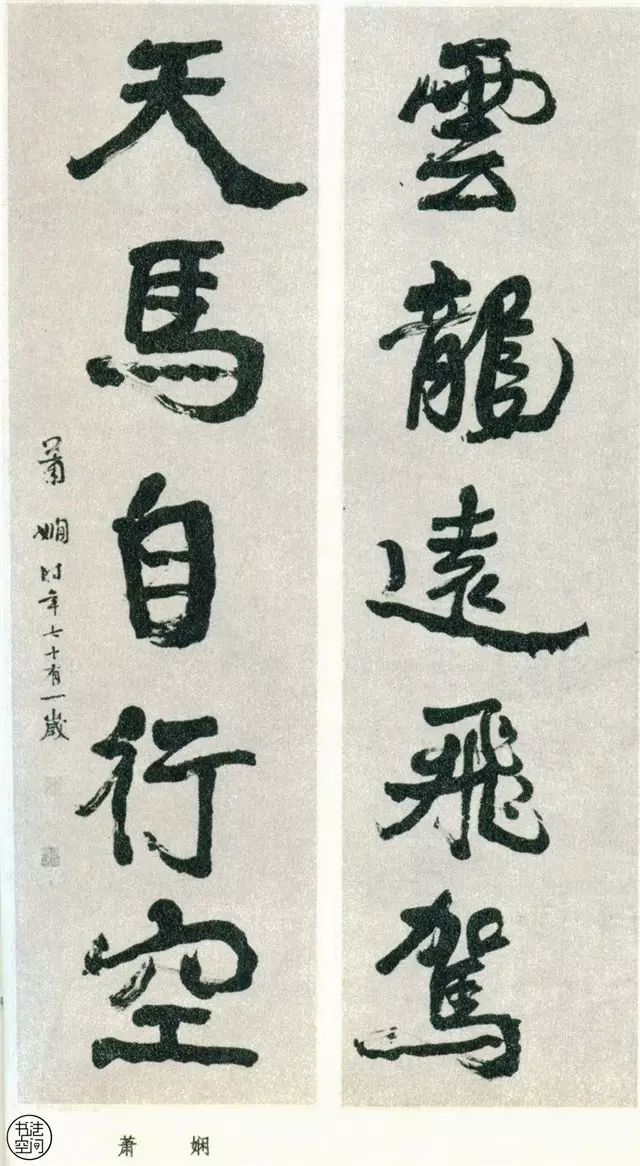 雲龍遠飛駕
天馬自行空
蕭嫻時年七十有一歲
萧娴
书法空间